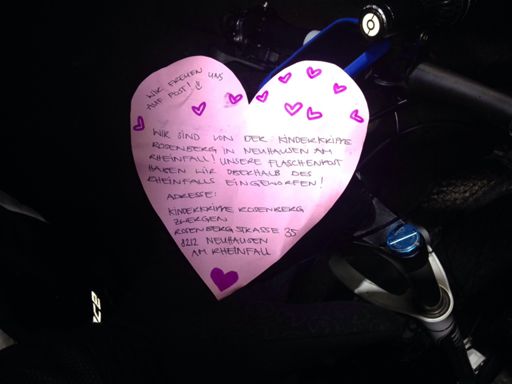 WIR FREUEN UNS
AUF POST!
WIR SIND VON DER KINDERKRIPPE
ROSENBERG IN NEUHAUSEN AM
RHEINFALL! UNSERE FLASCHENPOST
HABEN WIR OBERHALB DES
RHEINFALLS EINGEWORFEN!
ADRESSE:
KINDERKRIPPE ROSENBERG
ZWERGEN
ROSENBERGSTRASSE 35
8212 NEUHAUSEN
AM RHEINFALL